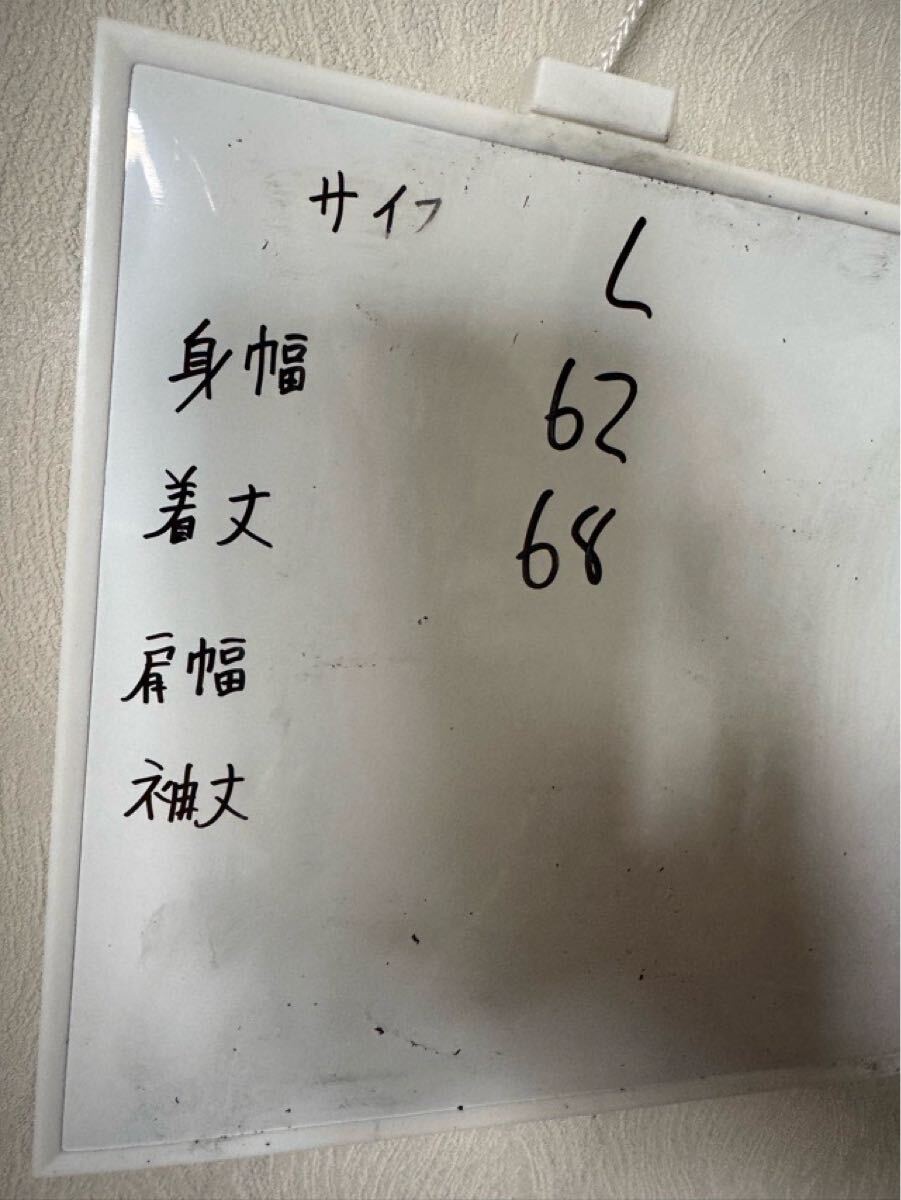 サイフ L
身幅 62
着丈 68
肩幅
袖丈